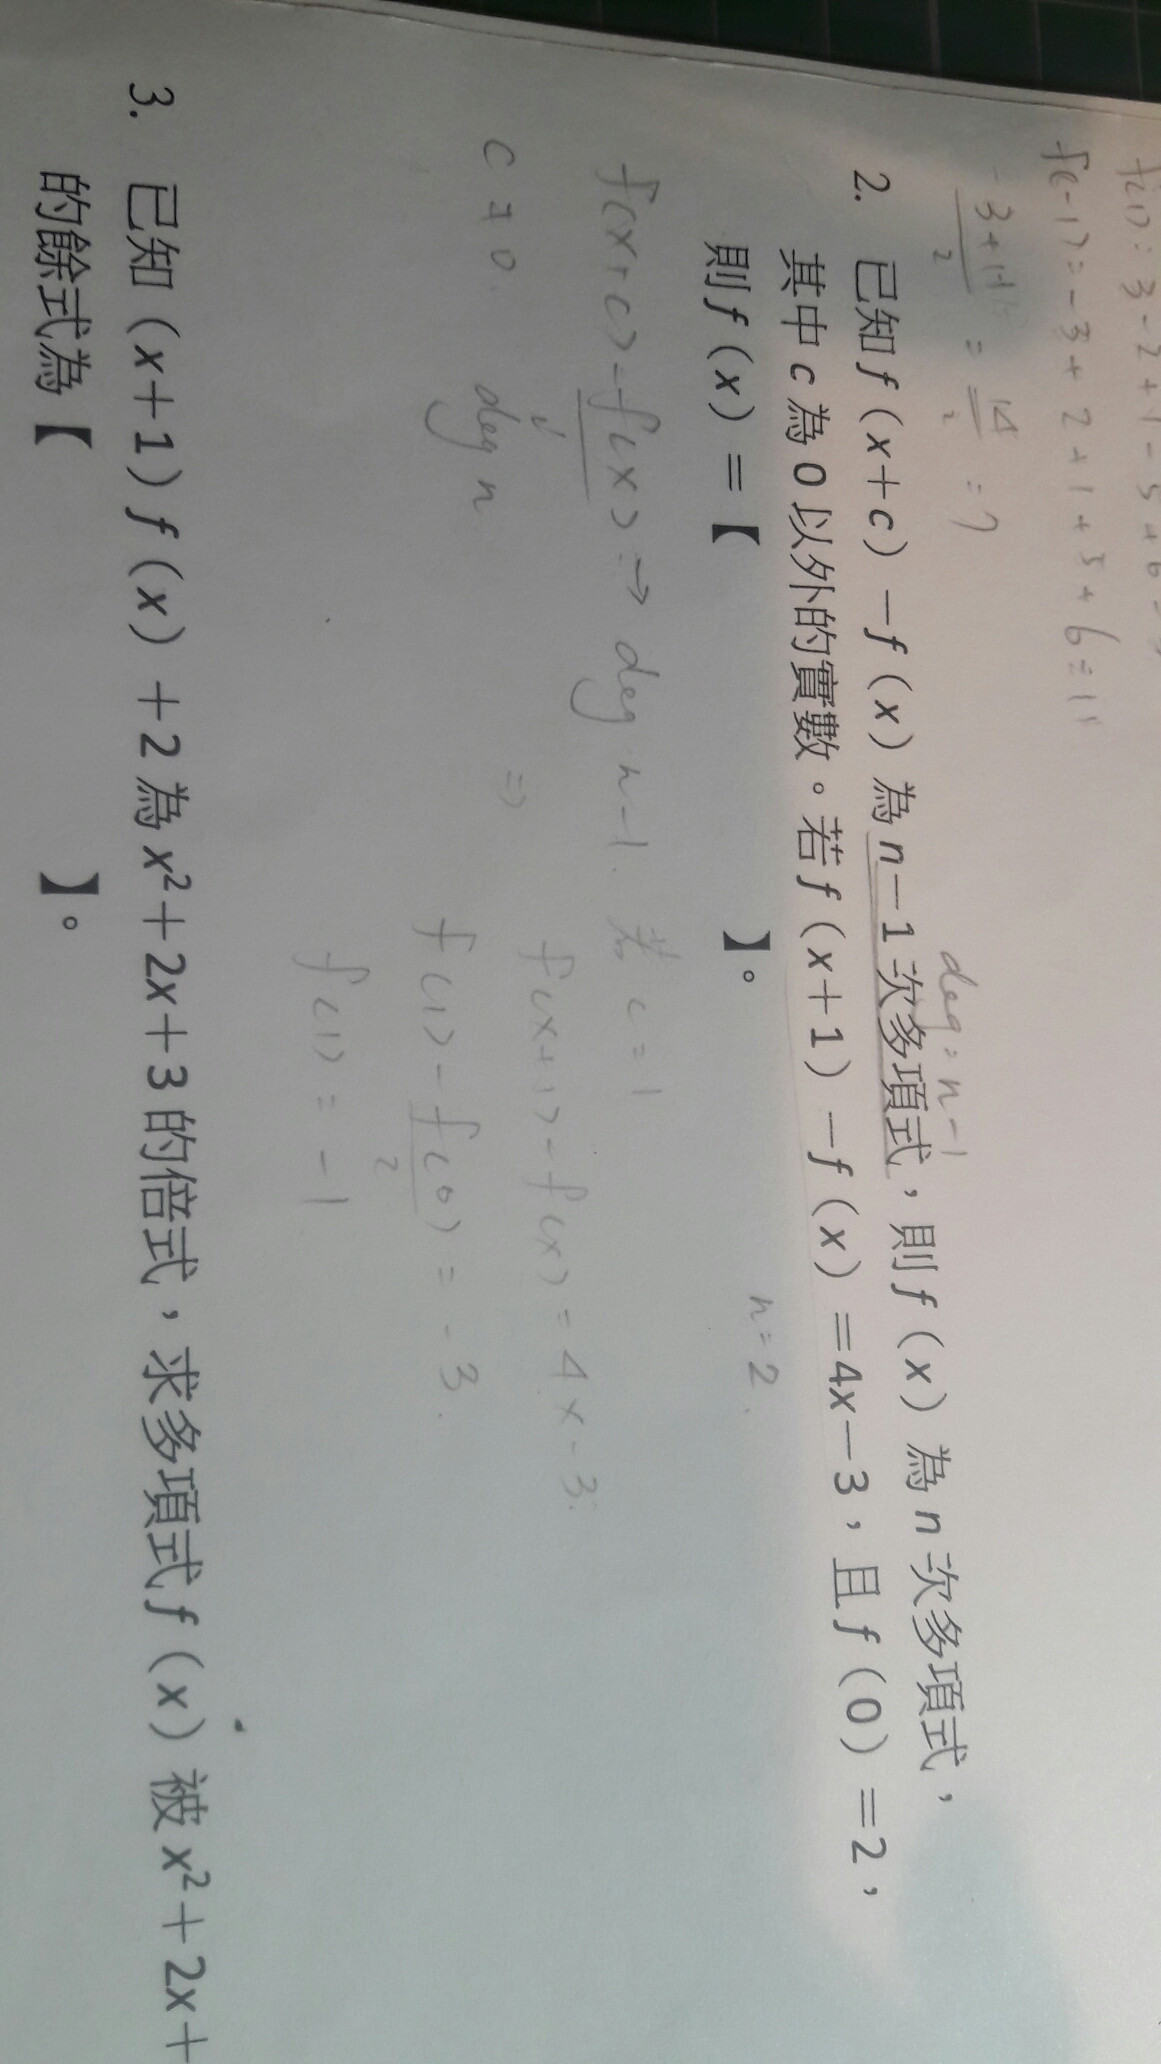 f(1)=3-2+1-5+6=3
f(-1)=-3+2+1+5+6=11
= 14/2 = 7
deg=n-1
2. 已知f(x+c)-f(x)為n-1次多項式,則f(x)為n次多項式,
其中c為0以外的實數。若f(x+1)-f(x)=4x-3,且f(0)=2,
則f(x)=【 】。
n=2.
f(x+c)-f(x) → deg n-1. 若 c=1
c≠0. deg n ⇒ f(x+1)-f(x)=4x-3.
f(1)-f(0)=-3.
2
f(1)=-1
3. 已知(x+1)f(x)+2為x²+2x+3的倍式,求多項式f(x)被x²+2x+
的餘式為【 】。